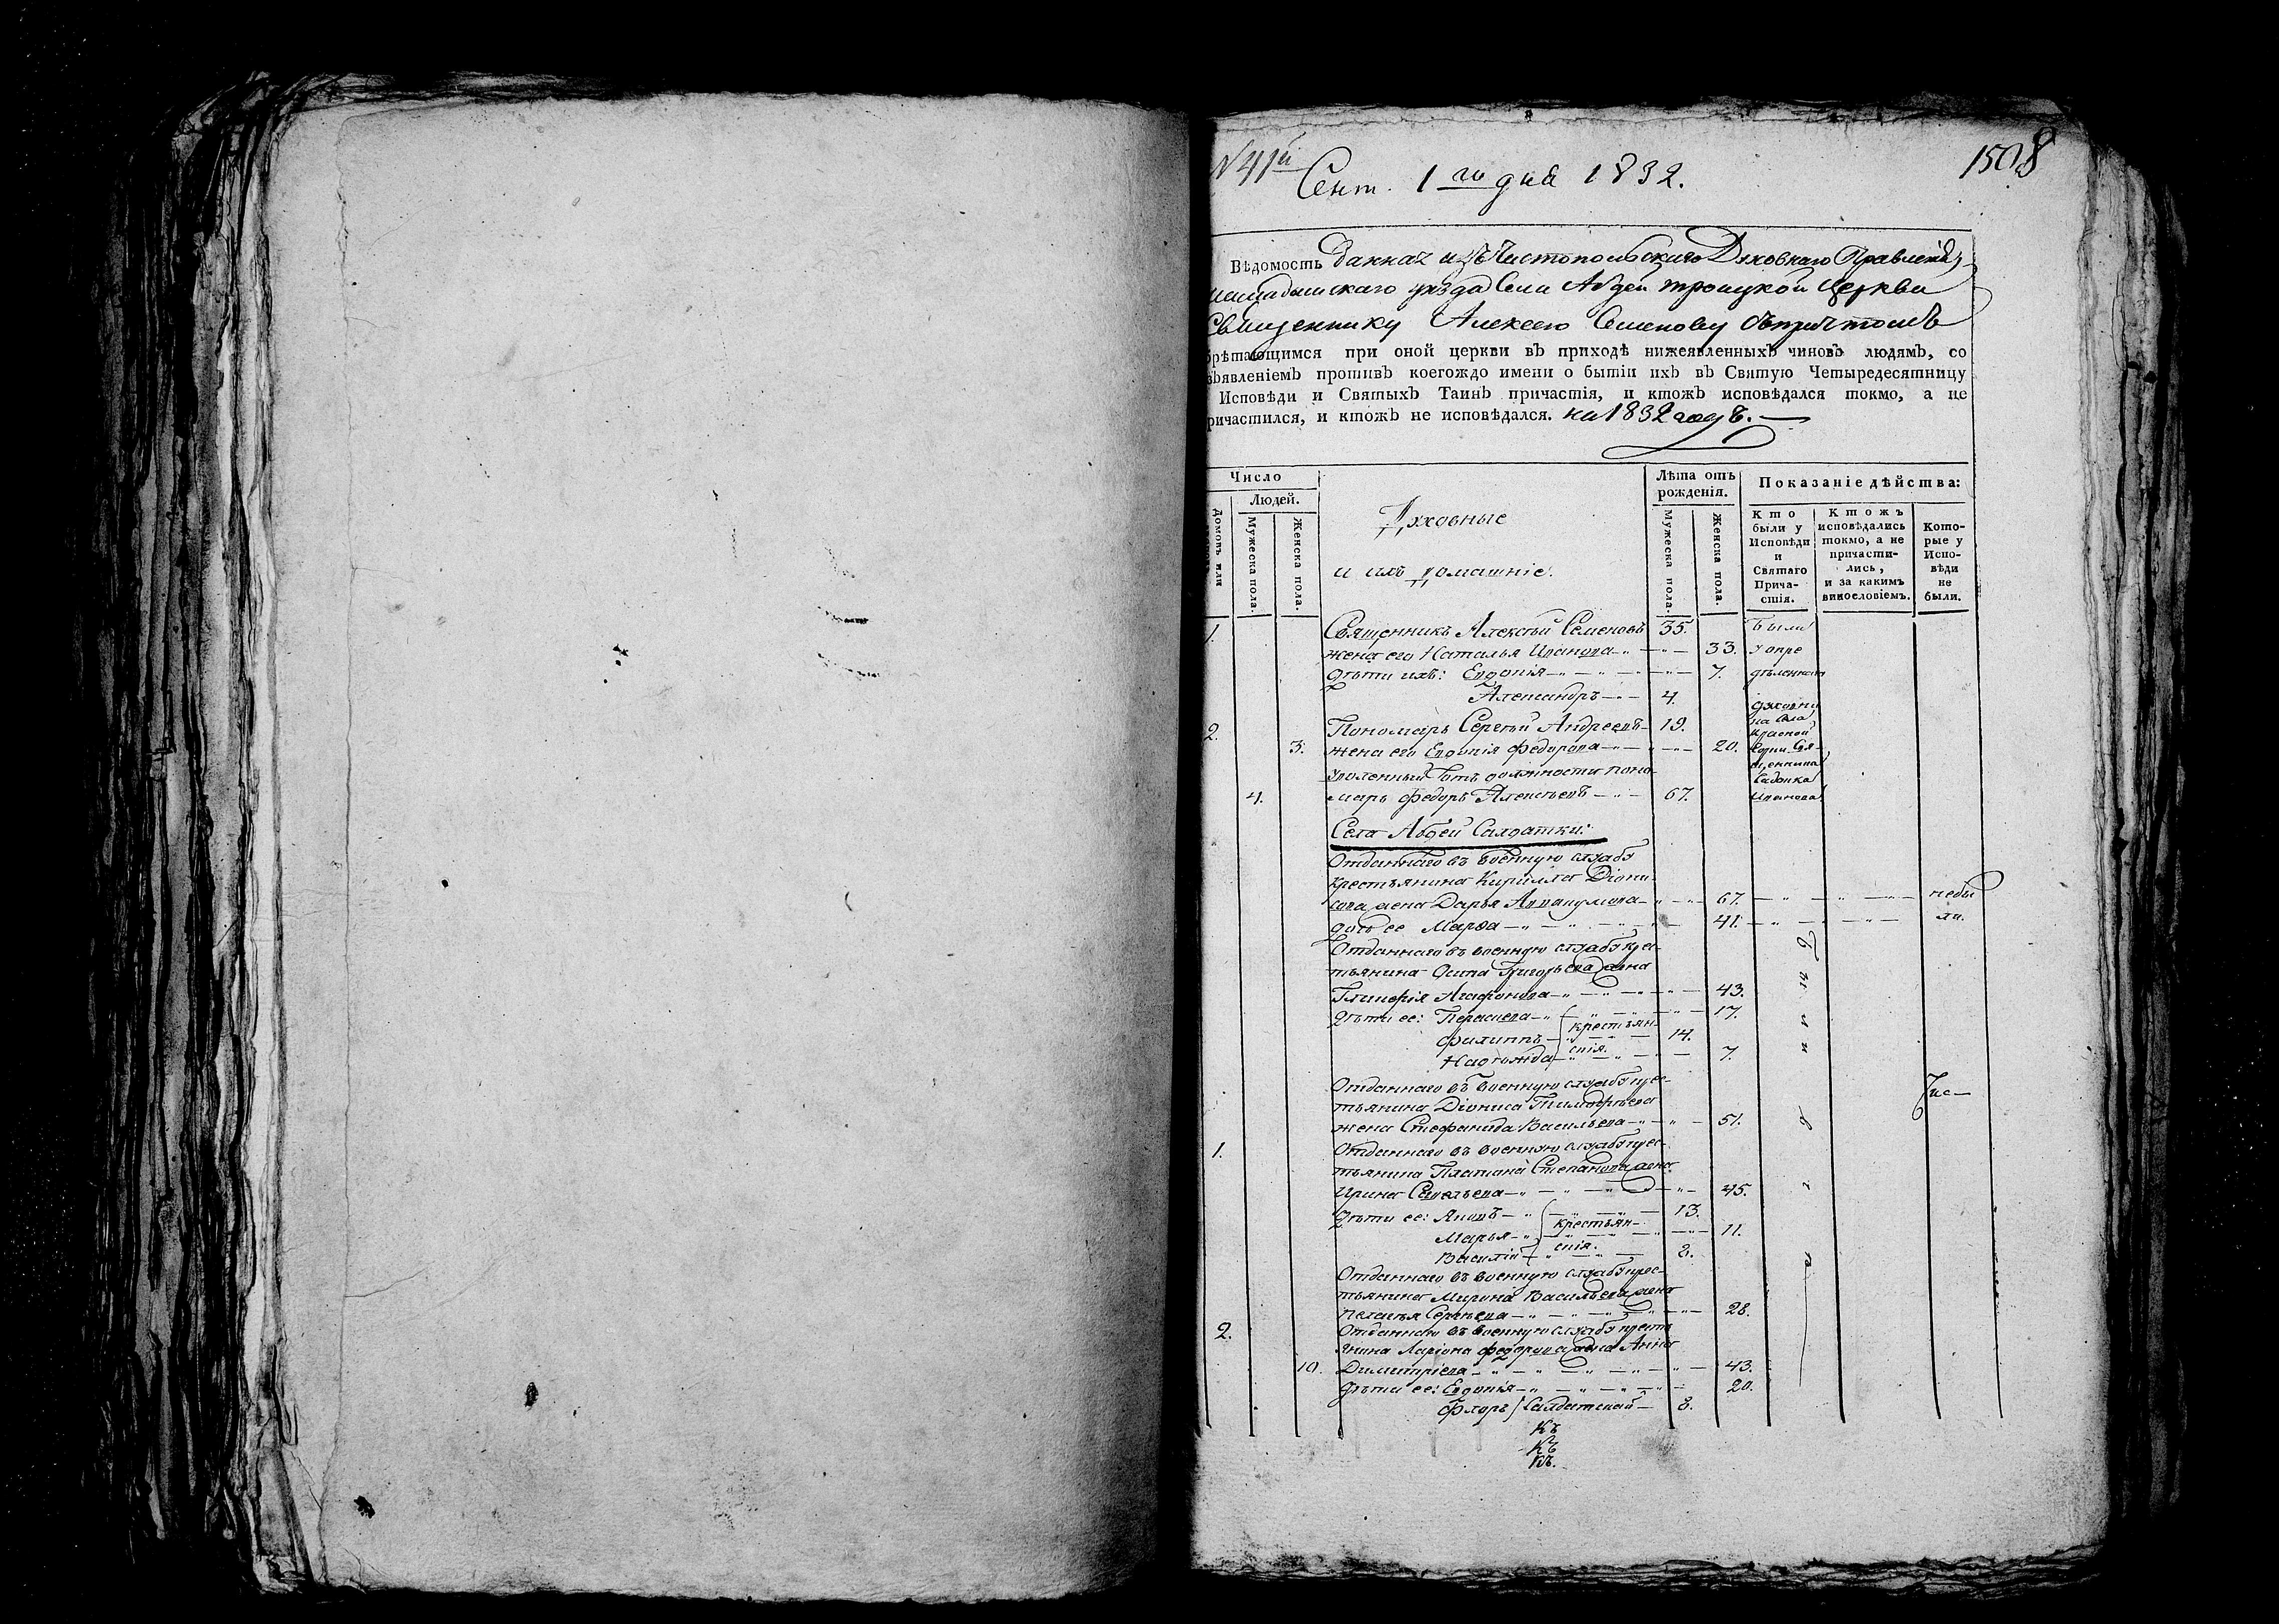 N 41й
Сент. 1го дня 1832.
1508
Вѣдомость данная изъ Чистопольскаго Духовнаго Правленія,
мамадышскаго уѣзда Села Абдей троицкой Церкви
Священнику Алексею Семенову съ притомъ
брѣтающимся при оной церкви въ приходѣ нижеявленныхъ чиновъ людямъ, со
ъявленіемъ противъ коегождо имени о бытіи ихъ въ Святую Четыредесятницу
Исповѣди и Святыхъ Таинъ причастія, и ктожъ исповѣдался токмо, а не
ричастился, и ктожъ не исповѣдался. на 1832 годъ.
Число
Людей.
Домовъ или
Мужеска пола.
Женска пола.
Духовные
и ихъ домашніе.
Лѣта отъ
рожденія.
Мужеска пола.
Женска пола.
Показаніе дѣйства:
Кто
были у
Исповѣди
и
Святаго
Прича-
стія.
Ктожъ
исповѣдались
токмо, а не
причасти-
лись,
и за какимъ
винословіемъ.
Кото-
рые у
Испо-
вѣди
не
были.
1. Священникъ Алексѣй Семеновъ 35. Были
жена его Наталья Иванова 33. у опре
дѣти ихъ: Евдокія 7. дѣленнаго
Александръ 4. духовни
на Села
2. Пономарь Сергѣй Андреевъ 19. Красной
3. жена его Евдокія Федорова 20. Свя-
уволенный отъ должности поно- щенника
4. марь Федоръ Алексѣевъ 67. Иванова
Села Абдей Салдатки:
Отданнаго въ военную службу
крестьянина Кирилла Діони-
сова жена Дарья 67. небы
дочь ее Марфа 41. ли.
Отданнаго въ военную службу крес-
тьянина Осипа Григорьева жена
Гликерія Агафонова 43.
дѣти ее: Параскева 17.
Филиппъ крестьян- 14.
Надежда скія. 7.
Отданнаго въ военную службу крес-
тьянина Діониса Тимофѣева
жена Стефанида Васильева 51.
1. Отданнаго въ военную службу крес-
тьянина Платона Степанова жена
Ирина Савельева 45.
дѣти ее: Яковъ 13.
Марья крестьян- 11.
Василій скія. 8.
Отданнаго въ военную службу крес-
тьянина Мирона Васильева жена
Пелагья Сергѣева 28.
2. Отданнаго въ военную службу крестъ
янина Ларіона Федорова жена Анна
10. Димитріева 43.
дѣти ее: Евдокія 20.
Флоръ Салдатской 8.